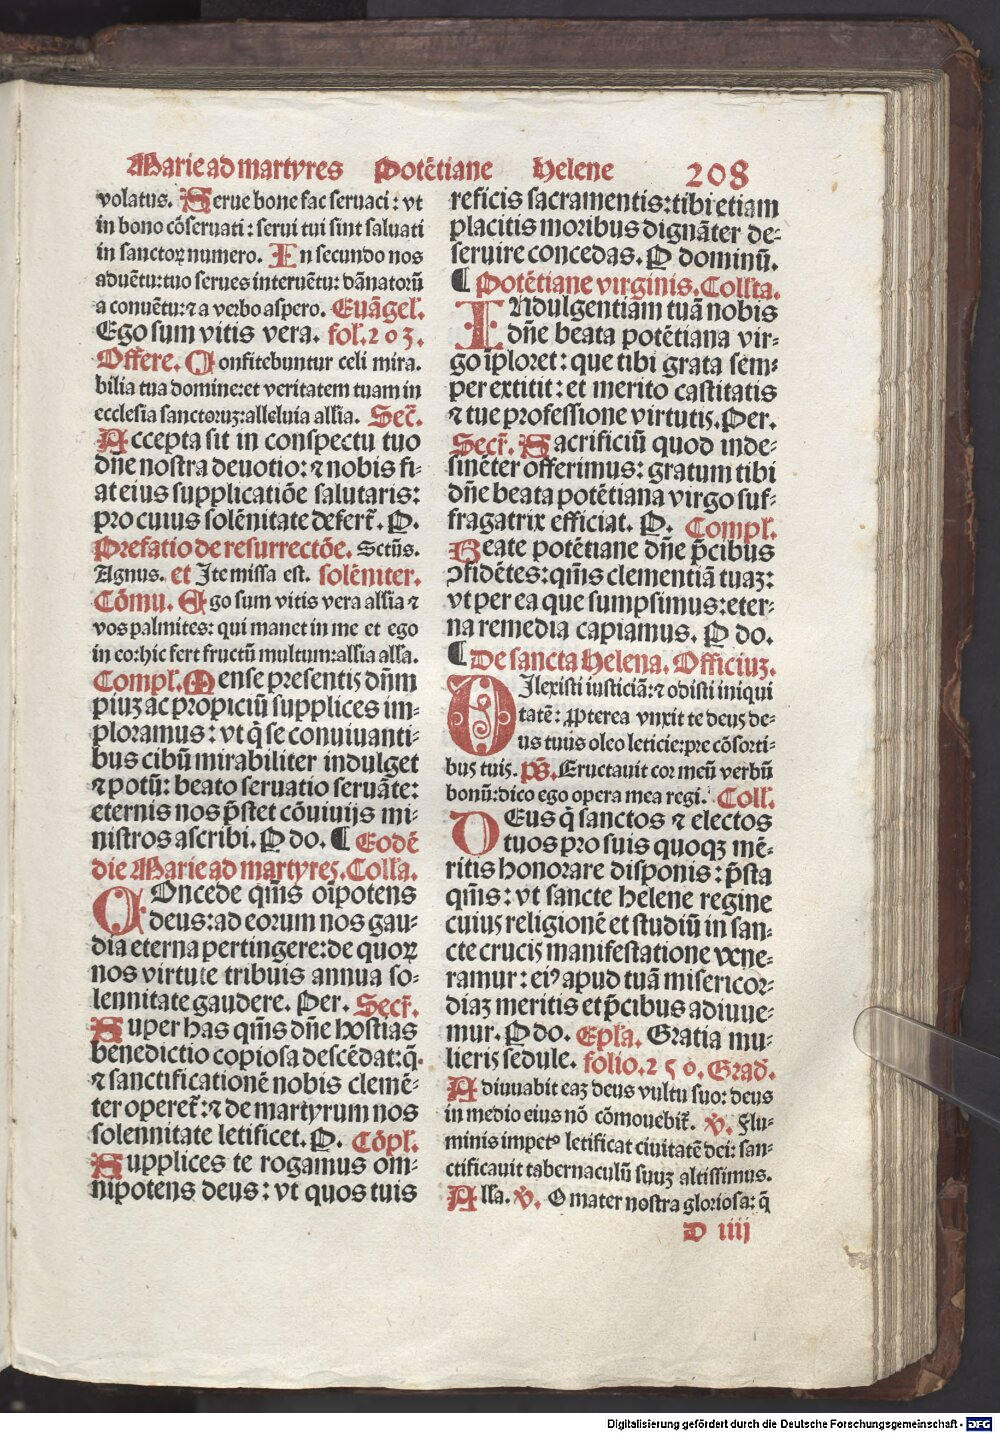 Marie ad martyres Potētiane Helene 208
volatus. Serue bone fac seruaci : vt
in bono cōseruati : serui tui sint saluati
in sanctoꝝ numero. In secundo nos
aduētu: tuo serues interuētu: dānatorū
a conuētu: ⁊ a verbo aspero. Euāgel̕.
Ego sum vitis vera. fol. 203.
Offere. Confitebuntur celi mira.
bilia tua domine: et veritatem tuam in
ecclesia sanctoruꝫ: alleluia allīa. Sec̄.
Accepta sit in conspectu tuo
dn̄e nostra deuotio: ⁊ nobis fi-
at eius supplicatiōe salutaris:
pro cuius solēnitate defert̄. P.
Prefatio de resurrectōe. Sctūs.
Agnus. et Ite missa est. solēniter.
Cōmu. Ego sum vitis vera allīa ⁊
vos palmites: qui manet in me et ego
in eo: hic fert fructū multum: allīa alla.
Compl̕. Mense presentis dn̄m
piuꝫ ac propiciū supplices im-
ploramus : vt q̄ se conuiuanti-
bus cibū mirabiliter indulget
⁊ potū: beato seruatio seruāte:
eternis nos p̄stet cōuiuijs mi-
nistros ascribi. P do. ¶ Eodē
die Marie ad martyres. Coll̄a.
COncede qm̄s oīpotens
deus: ad eorum nos gau-
dia eterna pertingere: de quoꝝ
nos virtute tribuis annua so-
lennitate gaudere. Per. Secr̄.
Super has qm̄s dn̄e hostias
benedictio copiosa descēdat: q̄
⁊ sanctificationē nobis clemē-
ter operet̄: ⁊ de martyrum nos
solennitate letificet. P. Cōpl̕.
Supplices te rogamus om-
nipotens deus : vt quos tuis
reficis sacramentis: tibi etiam
placitis moribus dignāter de-
seruire concedas. P dominū.
¶ Potētiane virginis. Coll̄ta.
INdulgentiam tuā nobis
dn̄e beata potētiana vir-
go īploret : que tibi grata sem-
per extitit : et merito castitatis
⁊ tue professione virtutis. Per.
Secr̄. Sacrificiū quod inde-
sinēter offerimus: gratum tibi
dn̄e beata potētiana virgo suf-
fragatrix efficiat. P. Compl̕.
Beate potētiane dn̄e p̄cibus
ↄfidētes: qm̄s clementiā tuaꝫ:
vt per ea que sumpsimus: eter-
na remedia capiamus. P do.
¶ De sancta Helena. Officiuꝫ.
DIlexisti iusticiā: ⁊ odisti iniqui
tatē : ꝓpterea vnxit te deus de-
us tuus oleo leticie: pre cōsorti-
bus tuis. ps̄. Eructauit cor meū verbū
bonū: dico ego opera mea regi. Coll̕.
DEus q̄ sanctos ⁊ electos
tuos pro suis quoqꝫ mē-
ritis honorare disponis : p̄sta
qm̄s : vt sancte helene regine
cuius religionē et studiū in san-
cte crucis manifestatione vene-
ramur : eiꝰ apud tuā misericor-
diaꝫ meritis et p̄cibus adiuue-
mur. P do. Epl̄a. Gratia mu-
lieris sedule. folio. 250. Grad̕.
Adiuuabit eaꝫ deus vultu suo: deus
in medio eius nō cōmouebit̄. v̄. Flu-
minis impetꝰ letificat ciuitatē dei: san-
ctificauit tabernaculū suuꝫ altissimus.
Alla. v̄. O mater nostra gloriosa: q̄
D iiij
Digitalisierung gefördert durch die Deutsche Forschungsgemeinschaft - DFG